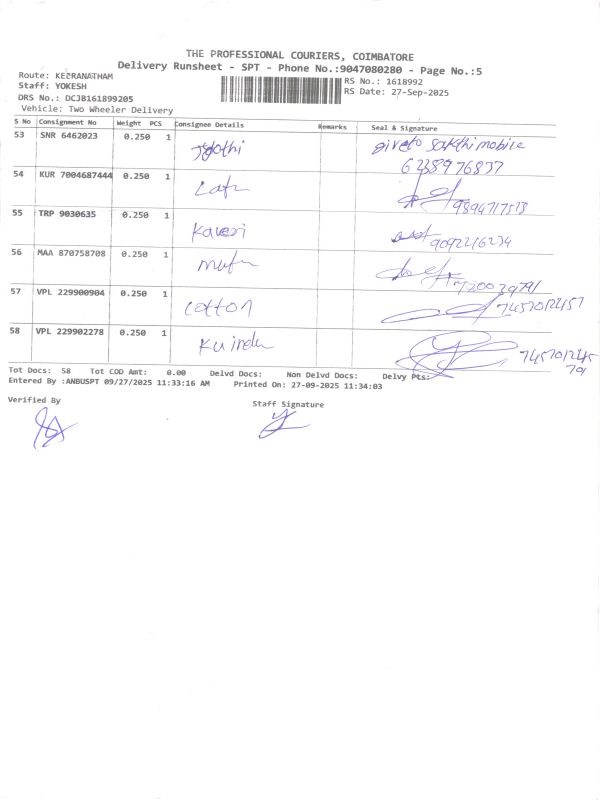 THE PROFESSIONAL COURIERS, COIMBATORE
Delivery Runsheet - SPT - Phone No.:9047080280 - Page No.:5
Route: KEERANATHAM
RS No.: 1618992
Staff: YOKESH
RS Date: 27-Sep-2025
DRS No.: DCJB161899205
Vehicle: Two Wheeler Delivery
S No Consignment No Weight PCS Consignee Details Remarks Seal & Signature
53 SNR 6462023 0.250 1 giveto sakthi mobile
54 KUR 7004687444 0.250 1
55 TRP 9030635 0.250 1 Kaveri 9092216234
56 MAA 870758708 0.250 1
57 VPL 229900904 0.250 1 cotton
58 VPL 229902278 0.250 1
Tot Docs: 58 Tot COD Amt: 0.00 Delvd Docs: Non Delvd Docs: Delvy Pts:
Entered By :ANBUSPT 09/27/2025 11:33:16 AM Printed On: 27-09-2025 11:34:03
Verified By
Staff Signature